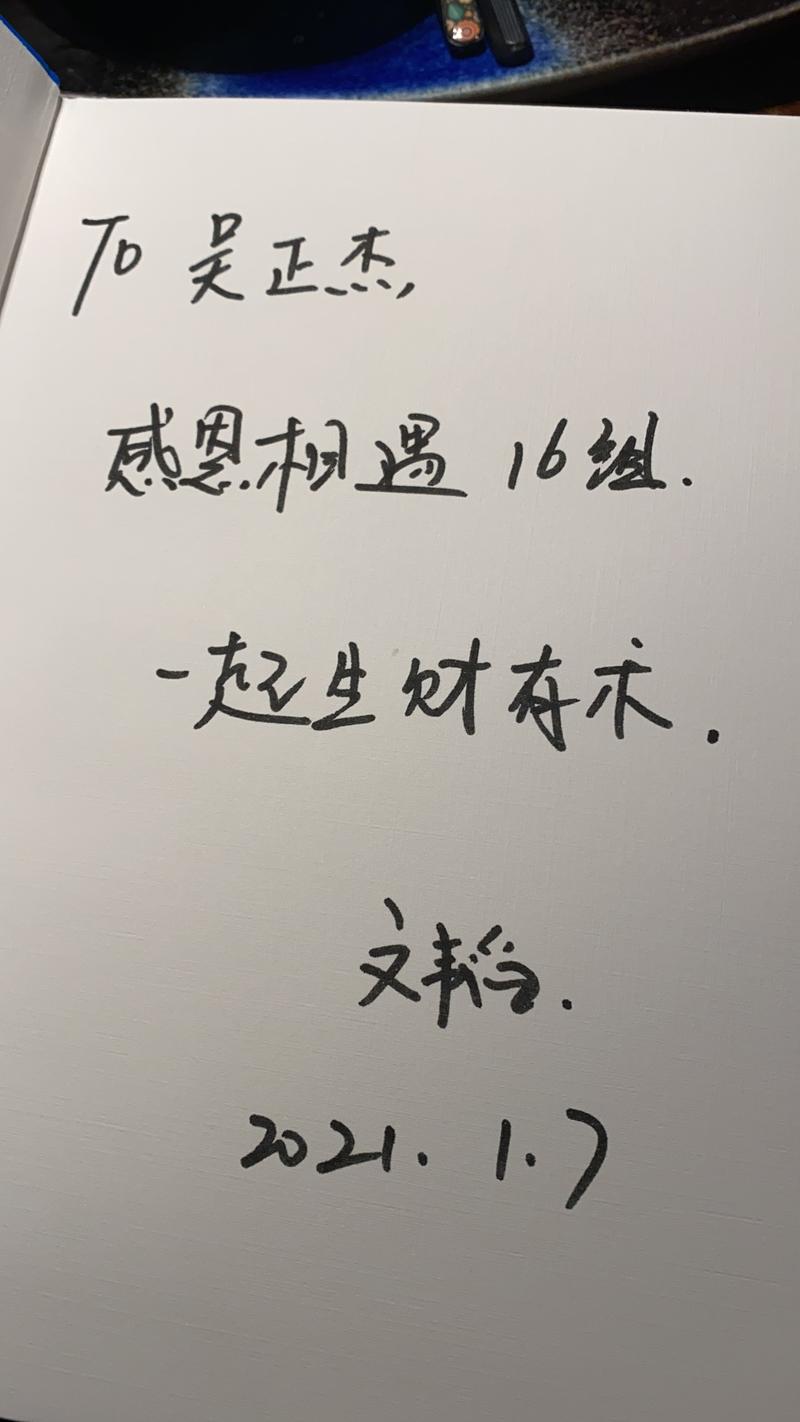 To 吴正杰,
感恩相遇 16组.
一起生财有术.
文韬.
2021.1.7